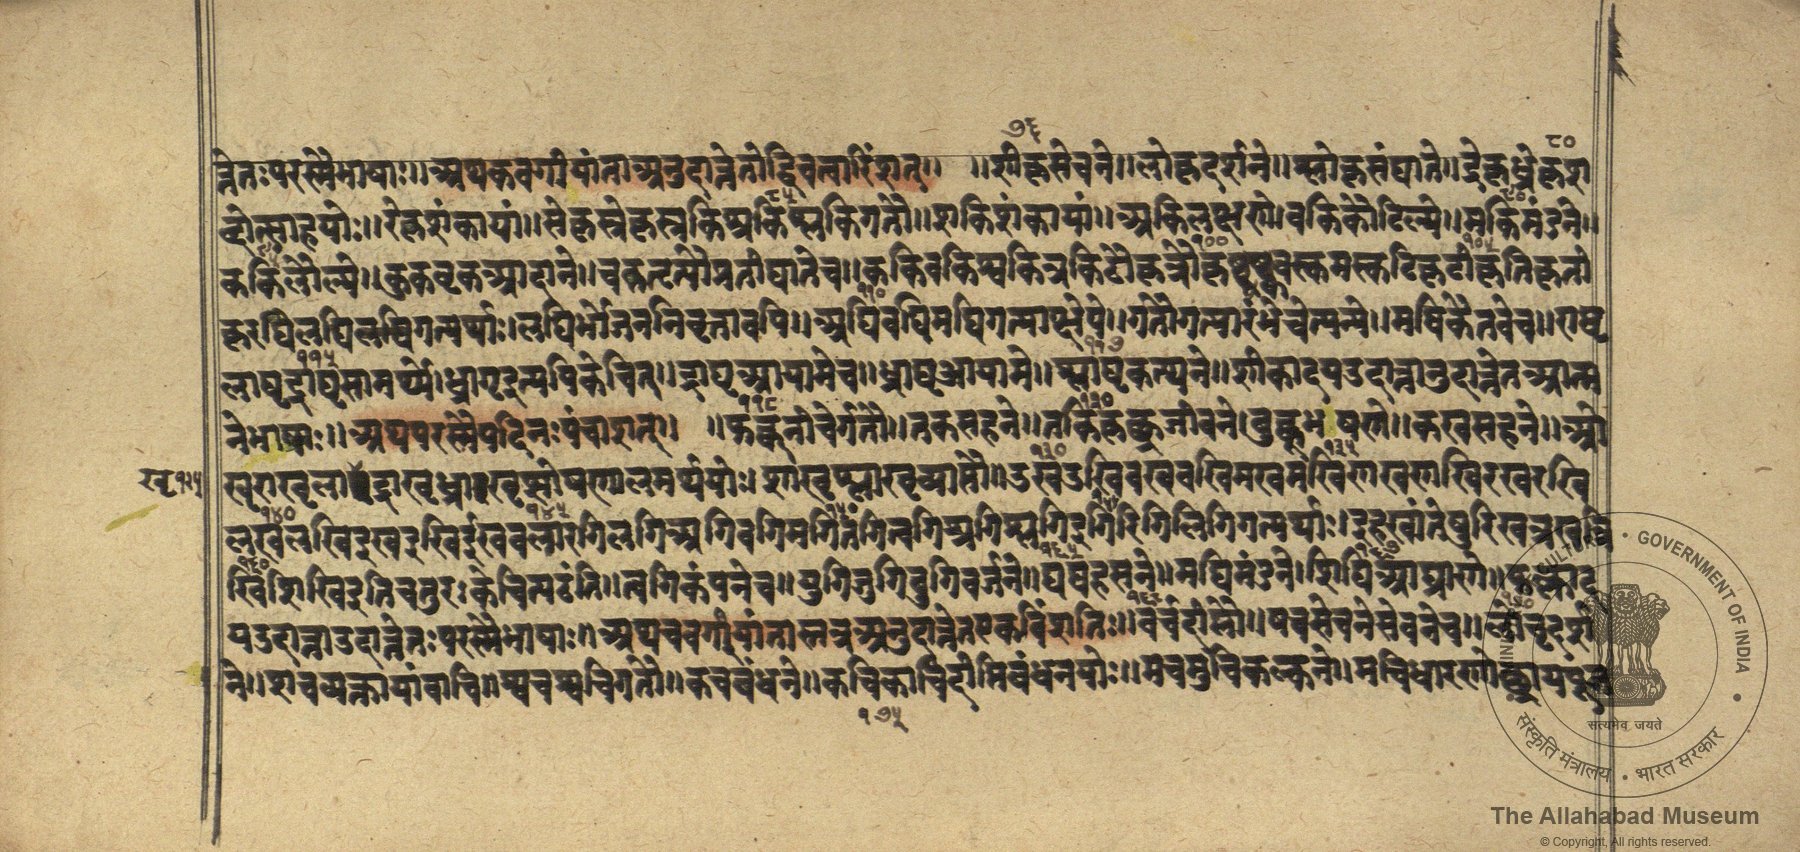 ७६ ८०
न्नेतः परस्मैभाषाः॥ अथ कवर्गीयांता अनुदात्तेतो द्विचत्वारिंशत्॥ ॥शीकृ सेचने॥ लोकृ दर्शने॥ श्लोकृ संघाते॥ द्रेकृ ध्रेकृ श
ब्दोत्साहयोः॥ रेकृ शंकायां॥ सेकृ स्रेकृ स्रकि श्रकि श्लकि गतौ॥ शकि शंकायां॥ अकि लक्षणे॥ वकि कौटिल्ये॥ मकि मंडने॥
ककि लौल्ये॥ कुक वृक आदाने॥ चक तृप्तौ प्रतीघाते च॥ ककि वकि श्वकि त्रकि ढौकृ त्रौकृ ष्वस्क वस्क मस्क टिकृ टीकृ तिकृ ती
कृ रघि लघि लघि गत्यर्थाः। लघि भोजननिवृत्तावपि॥ अघि वघि मघि गत्याक्षेपे॥ गतौ गत्यारंभे चेत्यन्ये॥ मघि कैतवे च॥ राघृ
लाघृ द्राघृ सामर्थ्ये। ध्राघृ इत्यपि केचित्॥ द्राघृ आयामे च॥ ध्राघृ आयामे॥ श्लाघृ कत्थने॥ शीकादय उदात्तानुदात्तेत आत्म
नेभाषाः॥ अथ परस्मैपदिनः पंचाशत्॥ ॥फक्क नीचैर्गतौ॥ तक सहने॥ तकि कृच्छ्रजीवने। बुक्क भषणे॥ कख सहने॥ ओ
खृ राखृ लाखृ द्राखृ ध्राखृ शोषणालमर्थयोः। शाखृ श्लाखृ व्याप्तौ॥ उख उखि वख वखि मख मखि णख णखि रख रखि
खृ १२५
लख लखि इख इखि ईख वल्ग रगि लगि अगि वगि मगि तगि त्वगि श्रगि श्लगि इगि रिगि लिगि गत्यर्थाः।
खि शिखि इति चतुरः केचित्पठंति॥ त्वगि कंपने च॥ युगि जुगि वुगि वर्जने॥ घघ हसने॥ मघि मंडने। शिघि आघ्राणे॥
य उदात्ता उदात्तेतः परस्मैभाषाः॥ अथ चवर्गीयांतास्तत्र अनुदात्तेत एकविंशतिः॥ वर्च दीप्तौ॥ षच सेचने सेवने च॥ लोचृ दर्श
ने॥ शच व्यक्तायां वाचि॥ श्वच श्वचि गतौ॥ कच बंधने॥ कचि काचि दीप्तिबंधनयोः॥ मच मुचि कल्कने॥ मचि धारणोच्छ्रायपूज
१७५
GOVERNMENT OF INDIA
सत्यमेव जयते
संस्कृति मंत्रालय • भारत सरकार
The Allahabad Museum
© Copyright, All rights reserved.